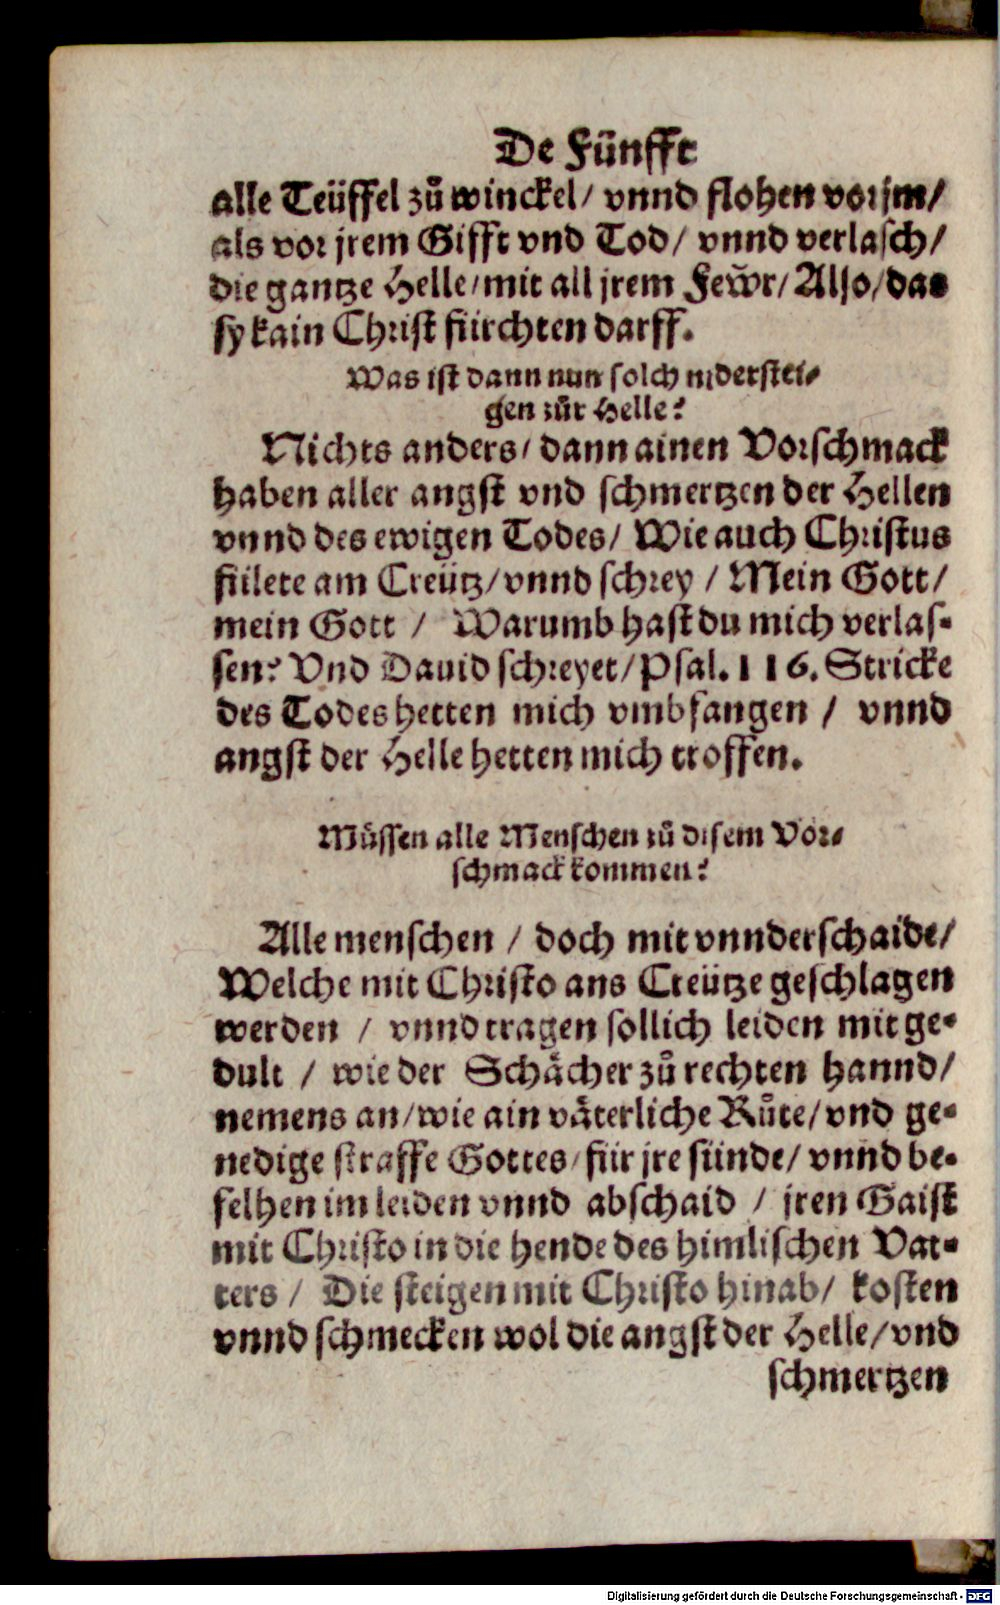 De Fünfft
alle Teüffel zů winckel/ vnnd flohen vor jm/
als vor jrem Gifft vnd Tod/ vnnd verlasch/
die gantze Helle/ mit all jrem Fewr/ Also/ das
sy kain Christ fürchten darff.
Was ist dann nun solch niderstei⸗
gen zůr Helle?
Nichts anders/ dann ainen Vorschmack
haben aller angst vnd schmertzen der Hellen
vnnd des ewigen Todes/ Wie auch Christus
fülete am Creütz/ vnnd schrey / Mein Gott/
mein Gott / Warumb hast du mich verlas⸗
sen? Vnd Dauid schreyet/ Psal. 116. Stricke
des Todes hetten mich vmbfangen / vnnd
angst der Helle hetten mich troffen.
Müssen alle Menschen zů disem Vor⸗
schmack kommen?
Alle menschen / doch mit vnnderschaide/
Welche mit Christo ans Creütze geschlagen
werden / vnnd tragen sollich leiden mit ge⸗
dult / wie der Schächer zů rechten hannd/
nemens an/ wie ain väterliche Růte/ vnd ge⸗
nedige straffe Gottes/ für jre sünde/ vnnd be⸗
felhen im leiden vnnd abschaid / jren Gaist
mit Christo in die hende des himlischen Vat⸗
ters / Die steigen mit Christo hinab/ kosten
vnnd schmecken wol die angst der Helle/ vnd
schmertzen
Digitalisierung gefördert durch die Deutsche Forschungsgemeinschaft - DFG